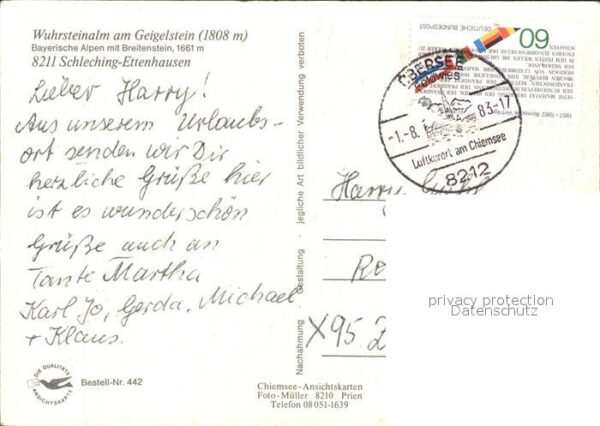 Wuhrsteinalm am Geigelstein (1808 m)
Bayerische Alpen mit Breitenstein, 1661 m
8211 Schleching-Ettenhausen
Lieber Harry!
Aus unserem Urlaubs-
ort senden wir Dir
herzliche Grüße hier
ist es wunderschön
Grüße auch an
Tante Martha
Karl Jo, Gerda, Michael
+ Klaus.
DIE QUALITÄTS
ANSICHTSKARTE
Bestell-Nr. 442
Chiemsee-Ansichtskarten
Foto-Müller 8210 Prien
Telefon 08051-1639
Nachahmung
Gestaltung
jegliche Art bildlicher Verwendung verboten
DEUTSCHE BUNDESPOST
60
ÜBERSEE
-1.-8.
83-17
Luftkurort am Chiemsee
8212
Harry
X95
privacy protection
Datenschutz